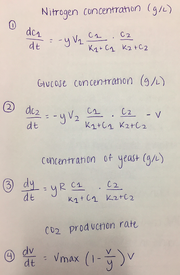 Nitrogen concentration (g/L)
① dc₁/dt = -y V₁ c₁/(K₁+C₁) · C₂/(K₂+C₂)
Glucose concentration (g/L)
② dc₂/dt = -y V₂ c₁/(K₁+C₁) · C₂/(K₂+C₂) - v
Concentration of yeast (g/L)
③ dy/dt = y R c₁/(K₁+C₁) · C₂/(K₂+C₂)
CO2 production rate
④ dv/dt = Vmax (1 - v/y) v